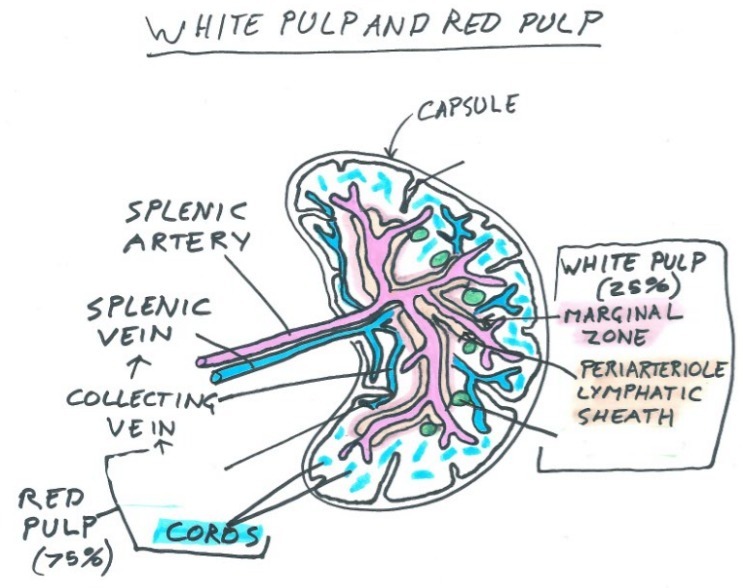 WHITE PULP AND RED PULP
CAPSULE
SPLENIC
ARTERY
SPLENIC
VEIN
↑
COLLECTING
VEIN
↑
RED
PULP
(75%)
CORDS
WHITE PULP
(25%)
MARGINAL
ZONE
PERIARTERIOLE
LYMPHATIC
SHEATH